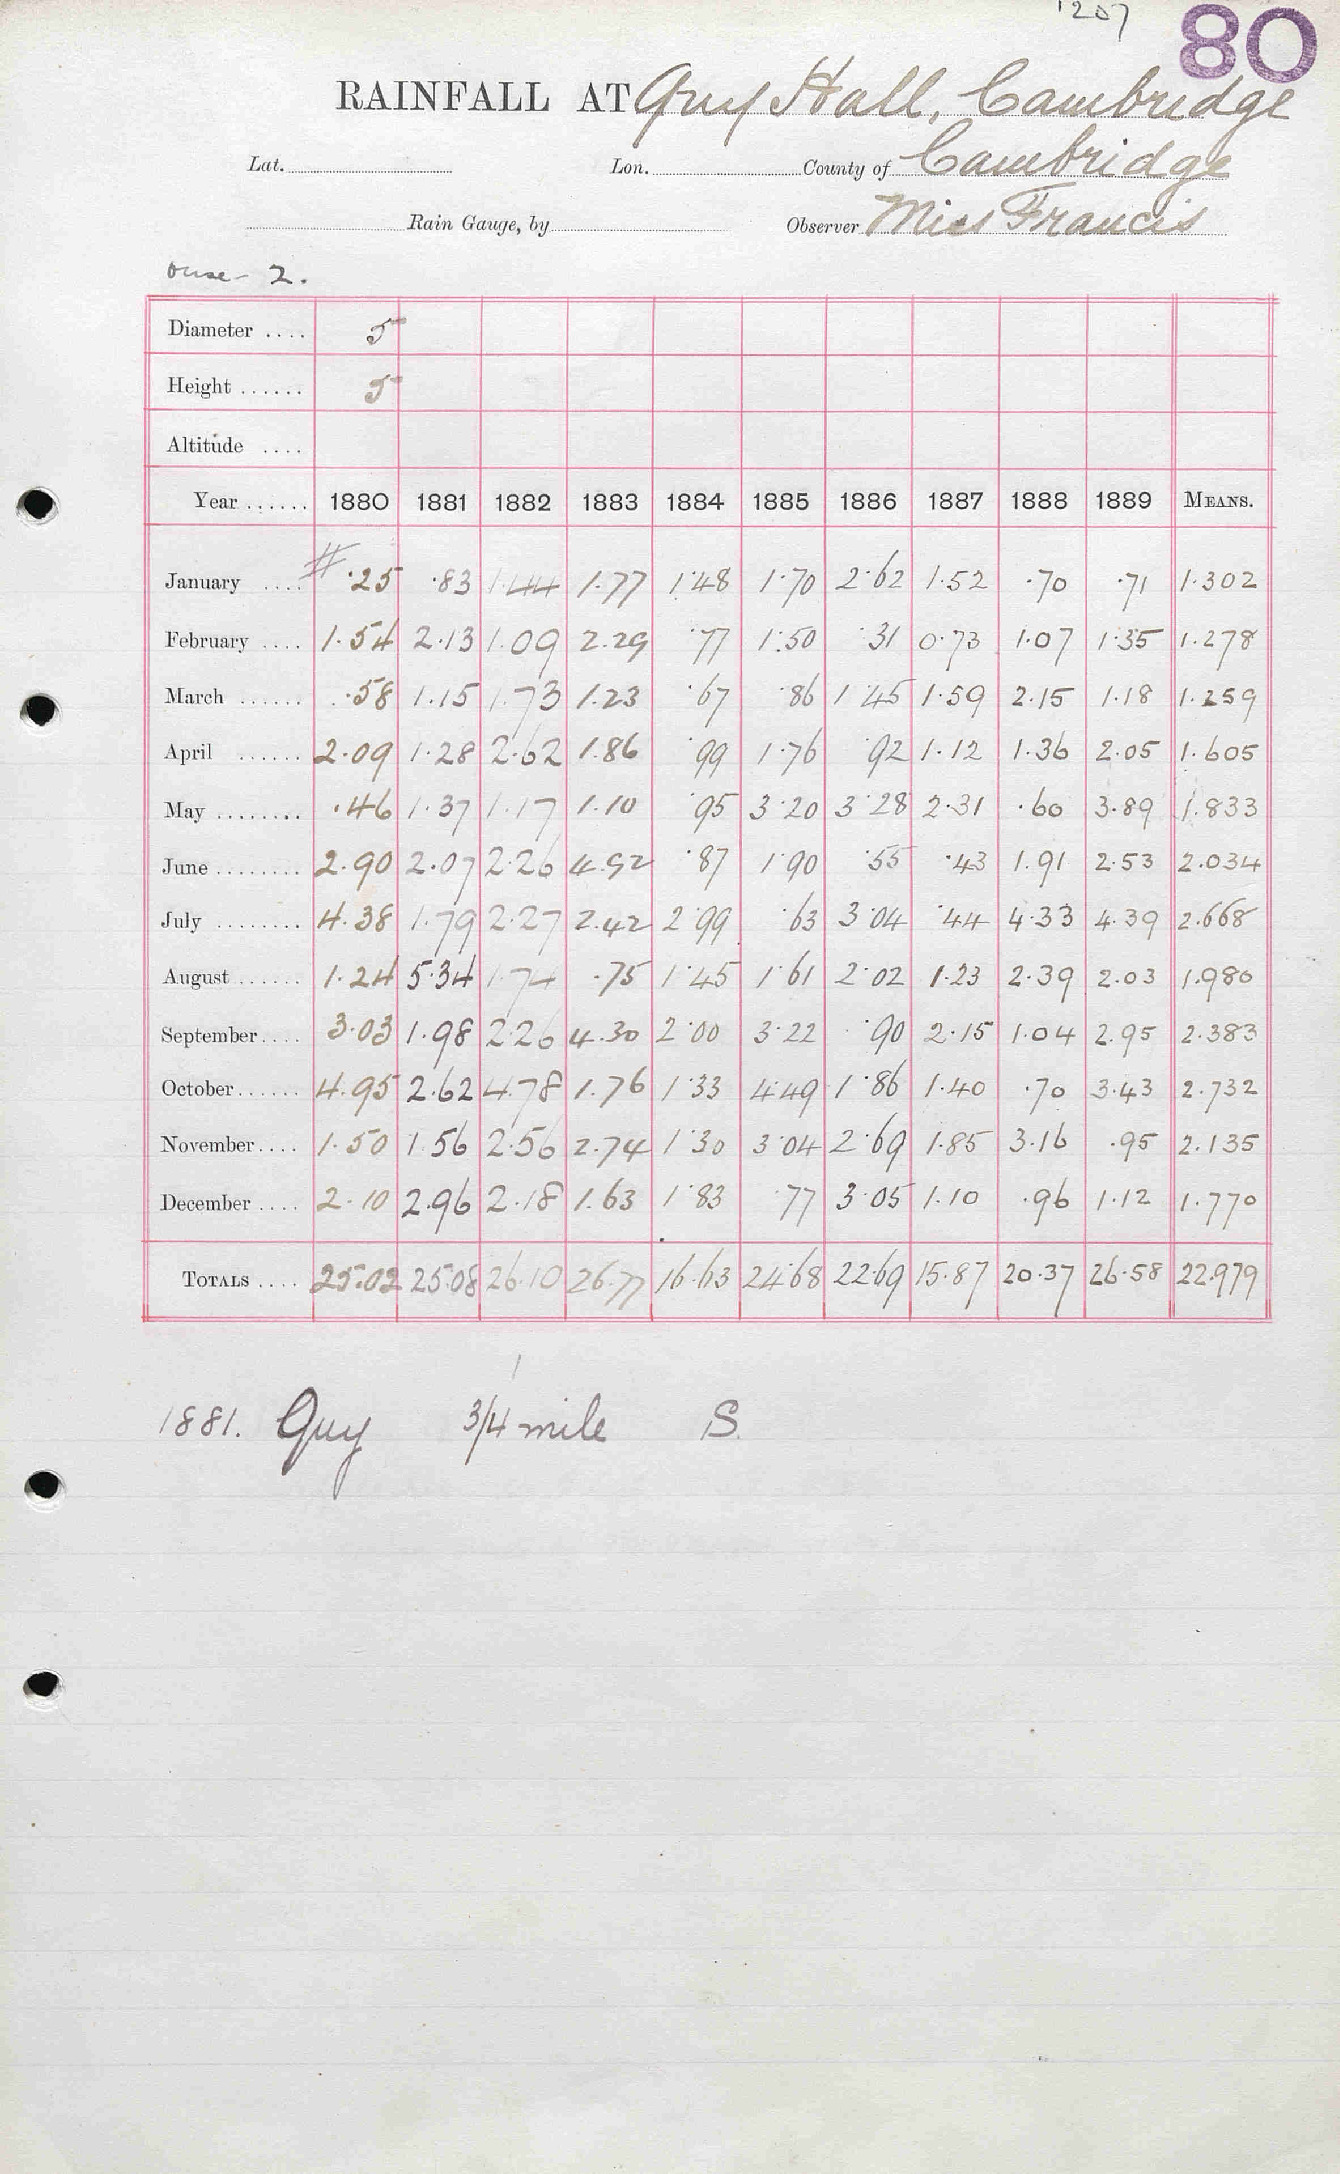 1207 80
RAINFALL AT Guy Hall, Cambridge
Lat. Lon. County of Cambridge
Rain Gauge, by Observer Miss Francis
Ouse 2.
Diameter .... 5
Height ...... 5
Altitude ....
Year ...... 1880 1881 1882 1883 1884 1885 1886 1887 1888 1889 MEANS.
January .... # .25 .83 1.44 1.77 1.48 1.70 2.62 1.52 .70 .71 1.302
February .... 1.54 2.13 1.09 2.29 .77 1.50 .31 0.73 1.07 1.35 1.278
March ...... .58 1.15 1.73 1.23 .67 .86 1.45 1.59 2.15 1.18 1.259
April ...... 2.09 1.28 2.62 1.86 .99 1.76 .92 1.12 1.36 2.05 1.605
May ........ .46 1.37 1.17 1.10 .95 3.20 3.28 2.31 .60 3.89 1.833
June ........ 2.90 2.07 2.26 4.92 .87 1.90 .55 .43 1.91 2.53 2.034
July ........ 4.38 1.79 2.27 2.42 2.99 .63 3.04 .44 4.33 4.39 2.668
August ...... 1.24 5.34 1.74 .75 1.45 1.61 2.02 1.23 2.39 2.03 1.980
September.... 3.03 1.98 2.26 4.30 2.00 3.22 .90 2.15 1.04 2.95 2.383
October...... 4.95 2.62 4.78 1.76 1.33 4.49 1.86 1.40 .70 3.43 2.732
November.... 1.50 1.56 2.56 2.74 1.30 3.04 2.69 1.85 3.16 .95 2.135
December .... 2.10 2.96 2.18 1.63 1.83 .77 3.05 1.10 .96 1.12 1.770
TOTALS .... 25.02 25.08 26.10 26.77 16.63 24.68 22.69 15.87 20.37 26.58 22.979
1881. Guy 3/4 mile S.